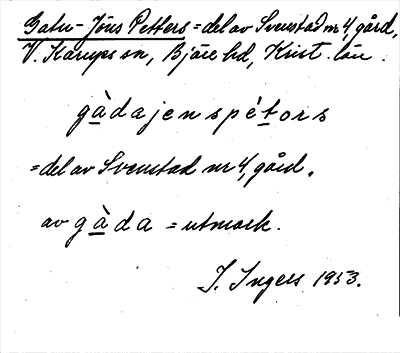 Gatu-Jöns Petters = del av Svenstad nr 4, gård,
V. Karups sn, Bjäre hd, Krist. län.
gàdajenspétors
= del av Svenstad nr 4, gård.
av gàda = utmark.
J. Ingers 1953.